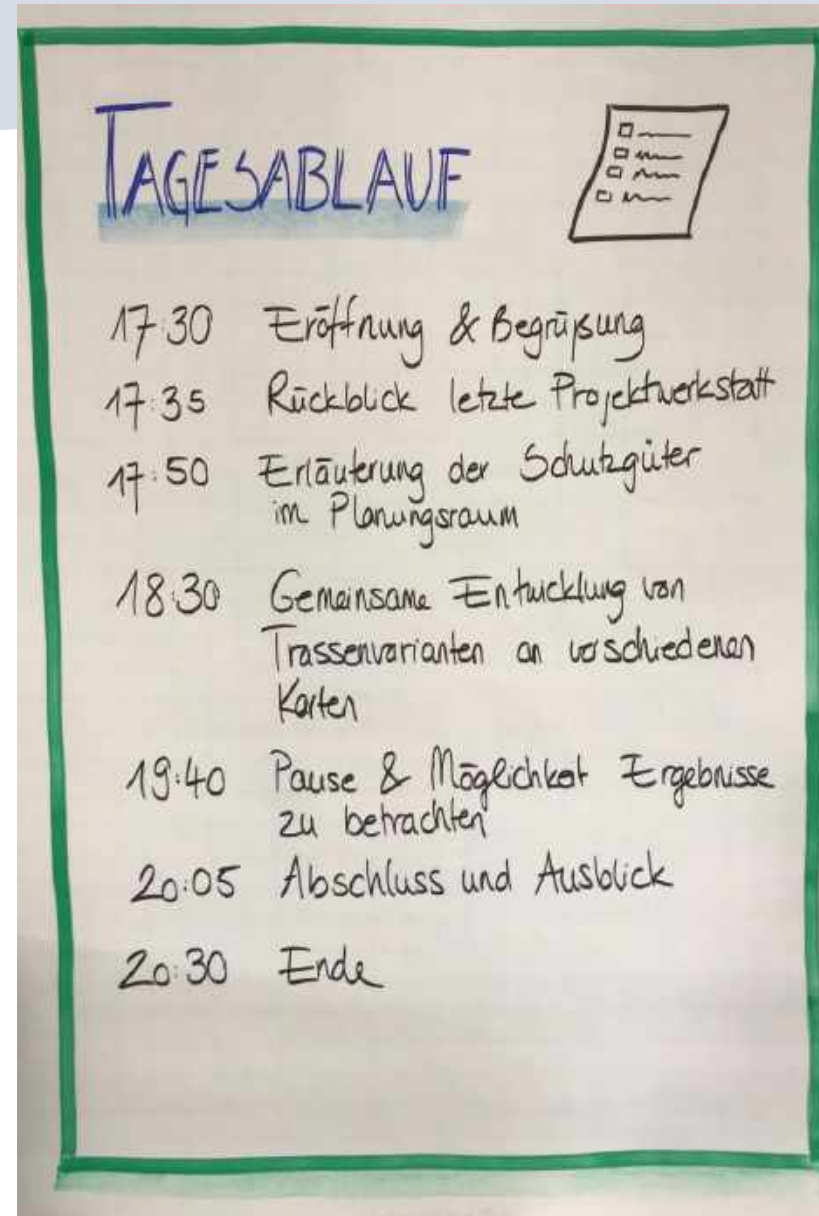 TAGESABLAUF
17:30 Eröffnung & Begrüßung
17:35 Rückblick letzte Projektwerkstatt
17:50 Erläuterung der Schutzgüter
im Planungsraum
18:30 Gemeinsame Entwicklung von
Trassenvarianten an verschiedenen
Karten
19:40 Pause & Möglichkeit Ergebnisse
zu betrachten
20:05 Abschluss und Ausblick
20:30 Ende